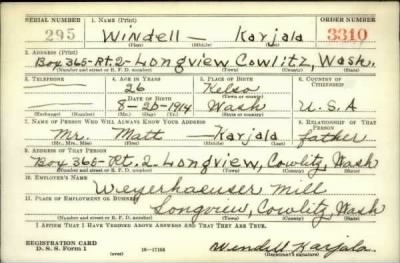 SERIAL NUMBER 1. NAME (Print) ORDER NUMBER
295 Windell — Karjala 3310
(First) (Middle) (Last)
2. ADDRESS (Print)
Box 365-Rt. 2- Longview, Cowlitz, Wash.
(Number and street or R. F. D. number) (Town) (County) (State)
3. TELEPHONE 4. AGE IN YEARS 5. PLACE OF BIRTH 6. COUNTRY OF CITIZENSHIP
26 Kelso
(Town or county)
DATE OF BIRTH
8-20-1914 Wash U.S.A
(Exchange) (Number) (Mo.) (Day) (Yr.) (State or country)
7. NAME OF PERSON WHO WILL ALWAYS KNOW YOUR ADDRESS 8. RELATIONSHIP OF THAT PERSON
Mr. Matt — Karjala father
(Mr., Mrs., Miss) (First) (Middle) (Last)
9. ADDRESS OF THAT PERSON
Box 365-Rt. 2. Longview, Cowlitz, Wash
(Number and street or R. F. D. number) (Town) (County) (State)
10. EMPLOYER'S NAME
Weyerhaeuser Mill
11. PLACE OF EMPLOYMENT OR BUSINESS
Longview, Cowlitz, Wash
(Number and street or R. F. D. number) (Town) (County) (State)
I AFFIRM THAT I HAVE VERIFIED ABOVE ANSWERS AND THAT THEY ARE TRUE.
REGISTRATION CARD
D. S. S. Form 1 (over) 16—17105 Windell Karjala
(Registrant's signature)